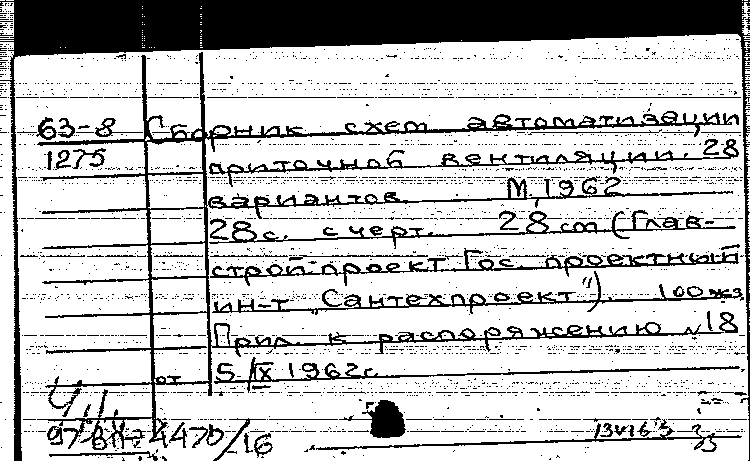 63-8 Сборник схем автоматизации
1275 приточной вентиляции. 28
вариантов. М, 1962
28 с. с черт. 28 cm (Глав-
строй-проект Гос. проектный
ин-т „Сантехпроект"). 100 экз
Прил. к распоряжению №18
от 5/IX 1962г.
4470/16